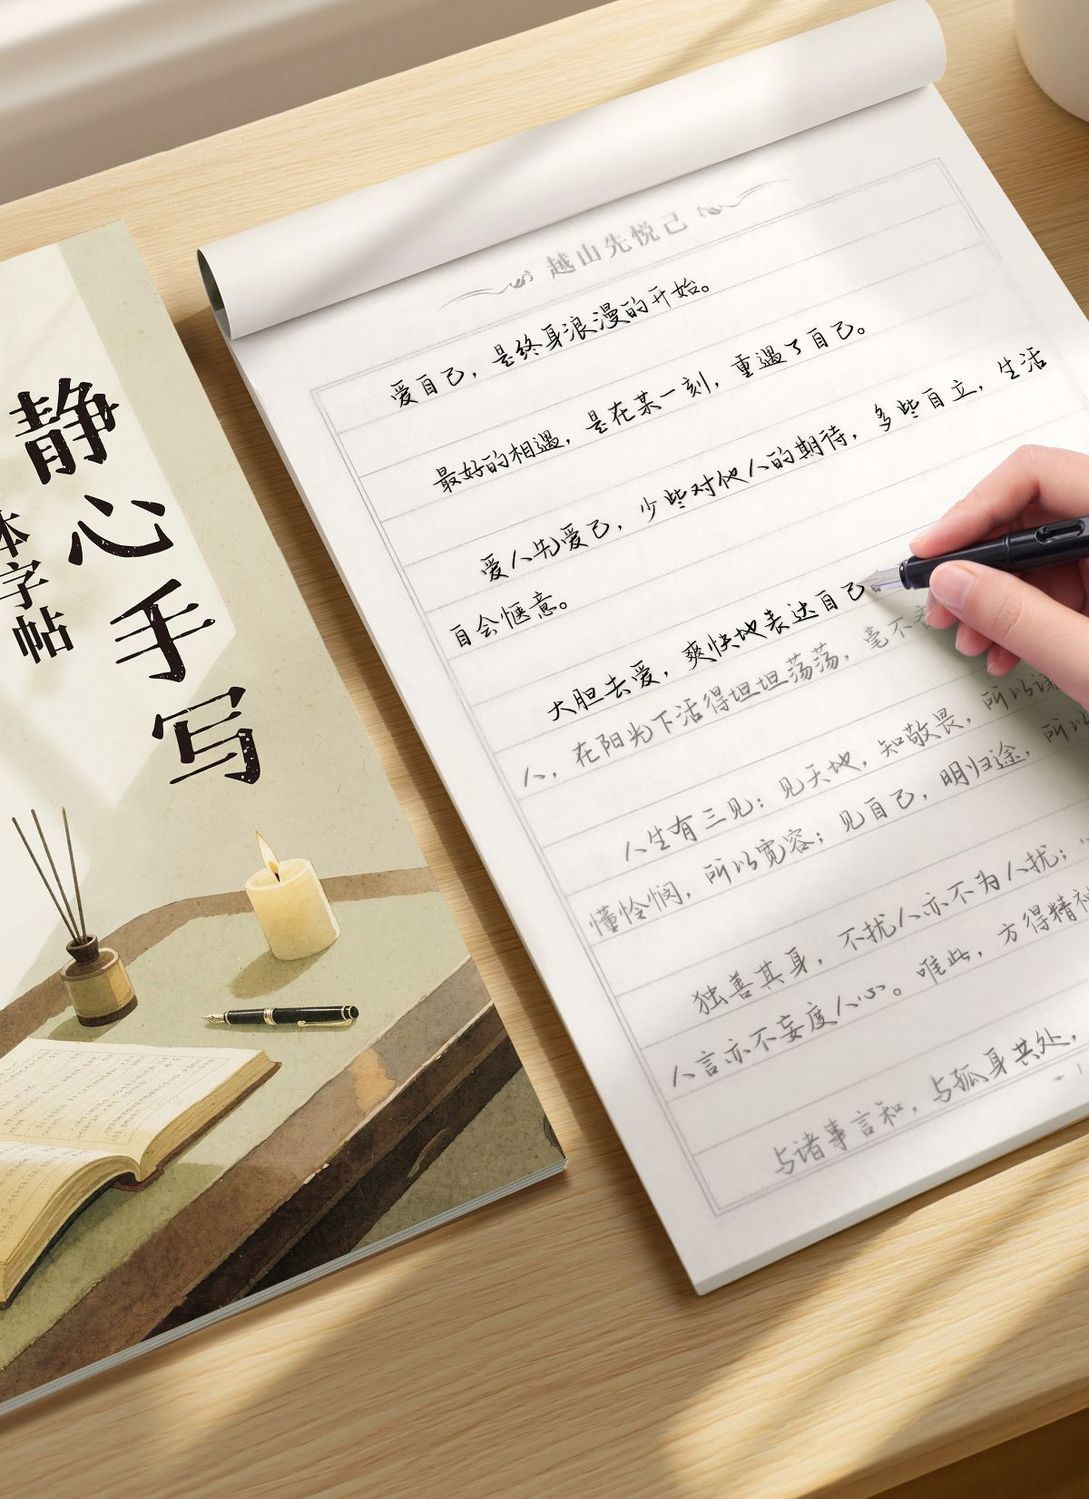 静心手写
字帖
越山先悦己
爱自己，是终身浪漫的开始。
最好的相遇，是在某一刻，重遇了自己。
爱人先爱己，少些对他人的期待，多些自立，生活
自会惬意。
大胆去爱，爽快地表达自己
人，在阳光下活得坦坦荡荡，毫不
人生有三见：见天地，知敬畏，所以谦
懂怜悯，所以宽容；见自己，明归途，所以
独善其身，不扰人亦不为人扰；
人言亦不妄度人心。唯此，方得精神
与诸事言和，与孤身共处，